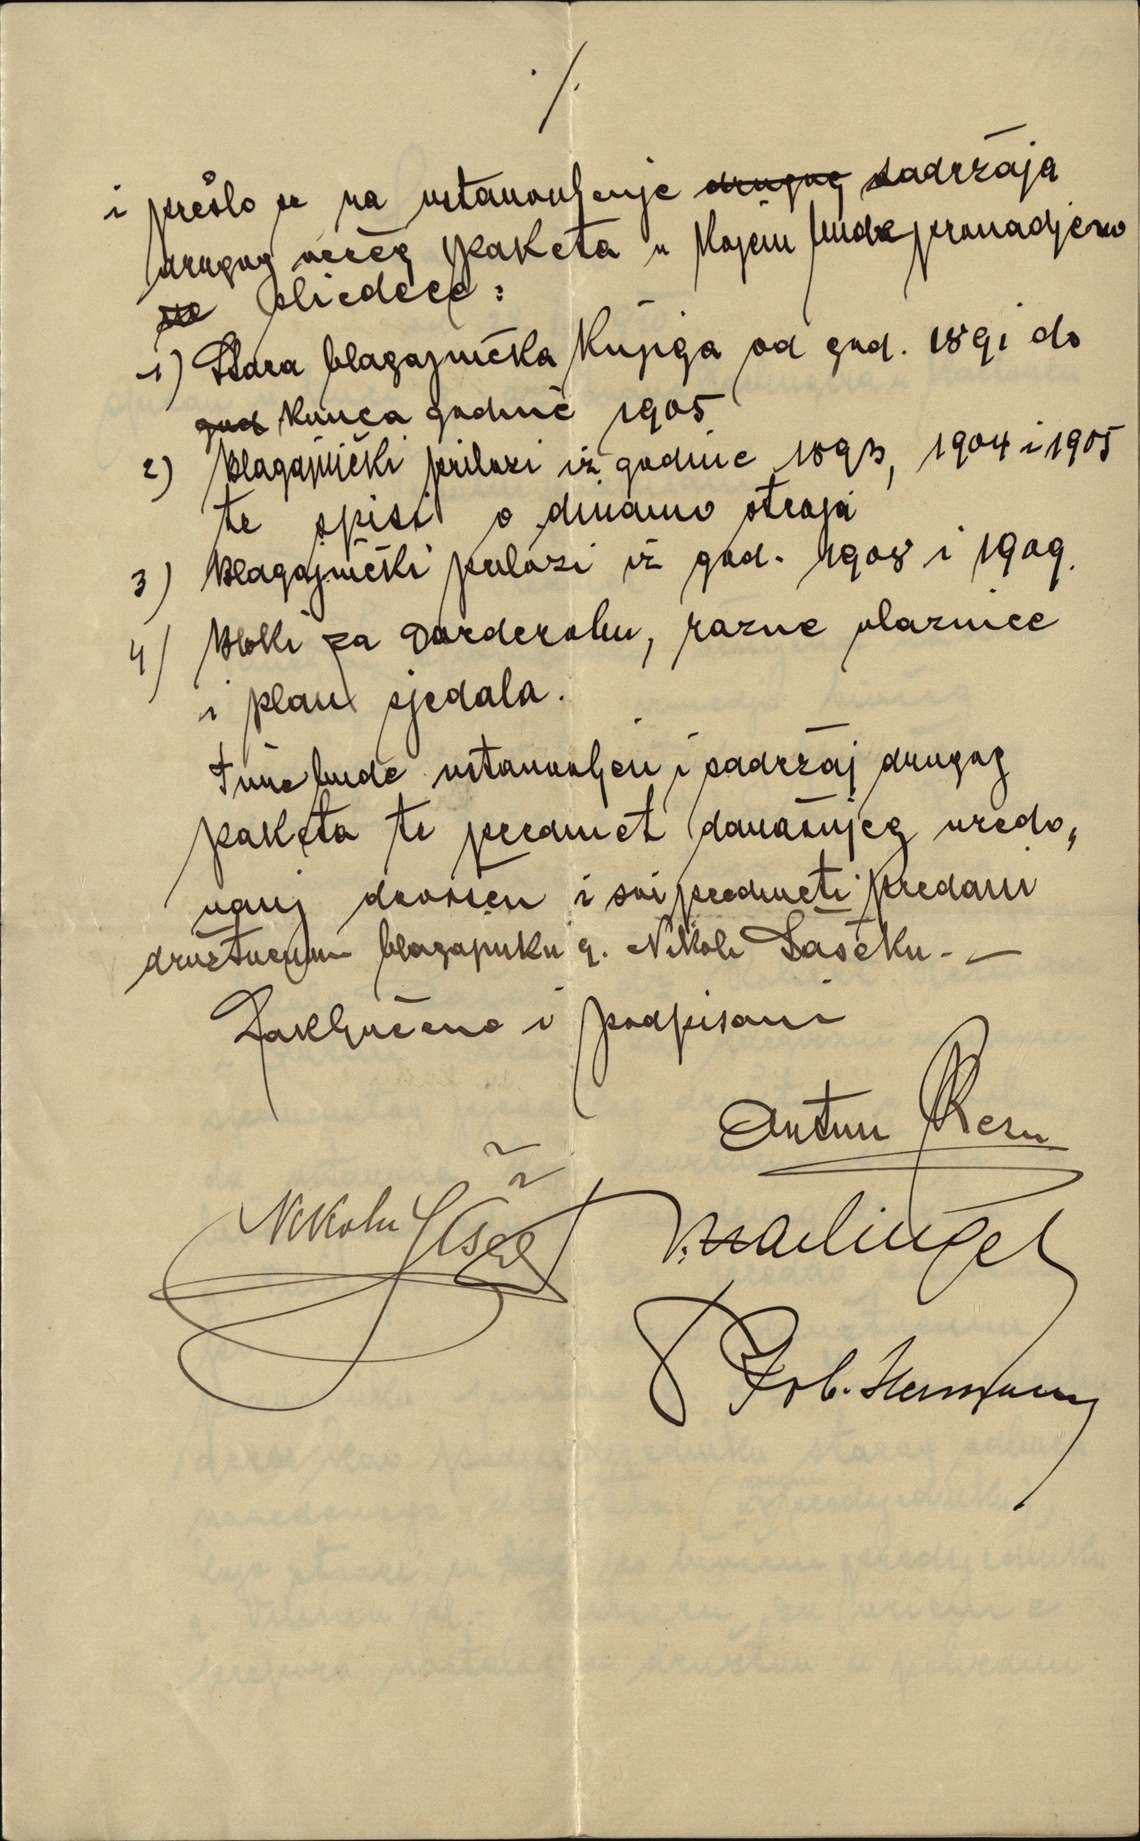 ./.
i prešlo se na ustanovljenje drugog sadržaja
drugog većeg paketa u kojem bude pronadjeno
sliedeće:
1) Stara blagajnička knjiga od god. 1891 do
god konca godine 1905
2) Blagajnički prilozi iz godine 1893, 1904 i 1905
te spisi o dinamo stroja
3) Blagajnički prilozi iz god. 1908 i 1909.
4) Bloki za garderobu, razne ulaznice
i plan sjedala.
Time bude ustanovljen i sadržaj drugog
paketa te predmet današnjeg uredo„
vanj dovršen i svi predmeti predani
družtvenom blagajniku g. Nikoli Šašeku. —
Zaključeno i podpisani
Antun
Nikola
Rob. Hermann